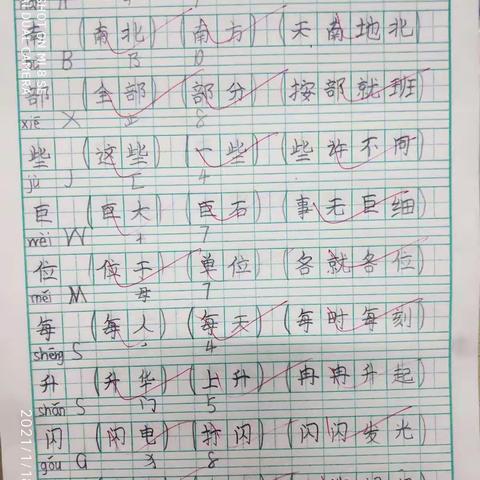 南 (南北) (南方) (天南地北)
B
部 (全部) (部分) (按部就班)
xiē X 8
些 (这些) (一些) (些许不同)
jù J 匚 4
巨 (巨大) (巨石) (事无巨细)
wèi W 7
位 (位于) (单位) (各就各位)
měi M 母 7
每 (每人) (每天) (每时每刻)
shēng S 4
升 (升华) (上升) (冉冉升起)
shǎn S 门 5
闪 (闪电) (打闪) (闪闪发光)
gǒu G 犭 8
DUAL CAMERA
2021/1/1